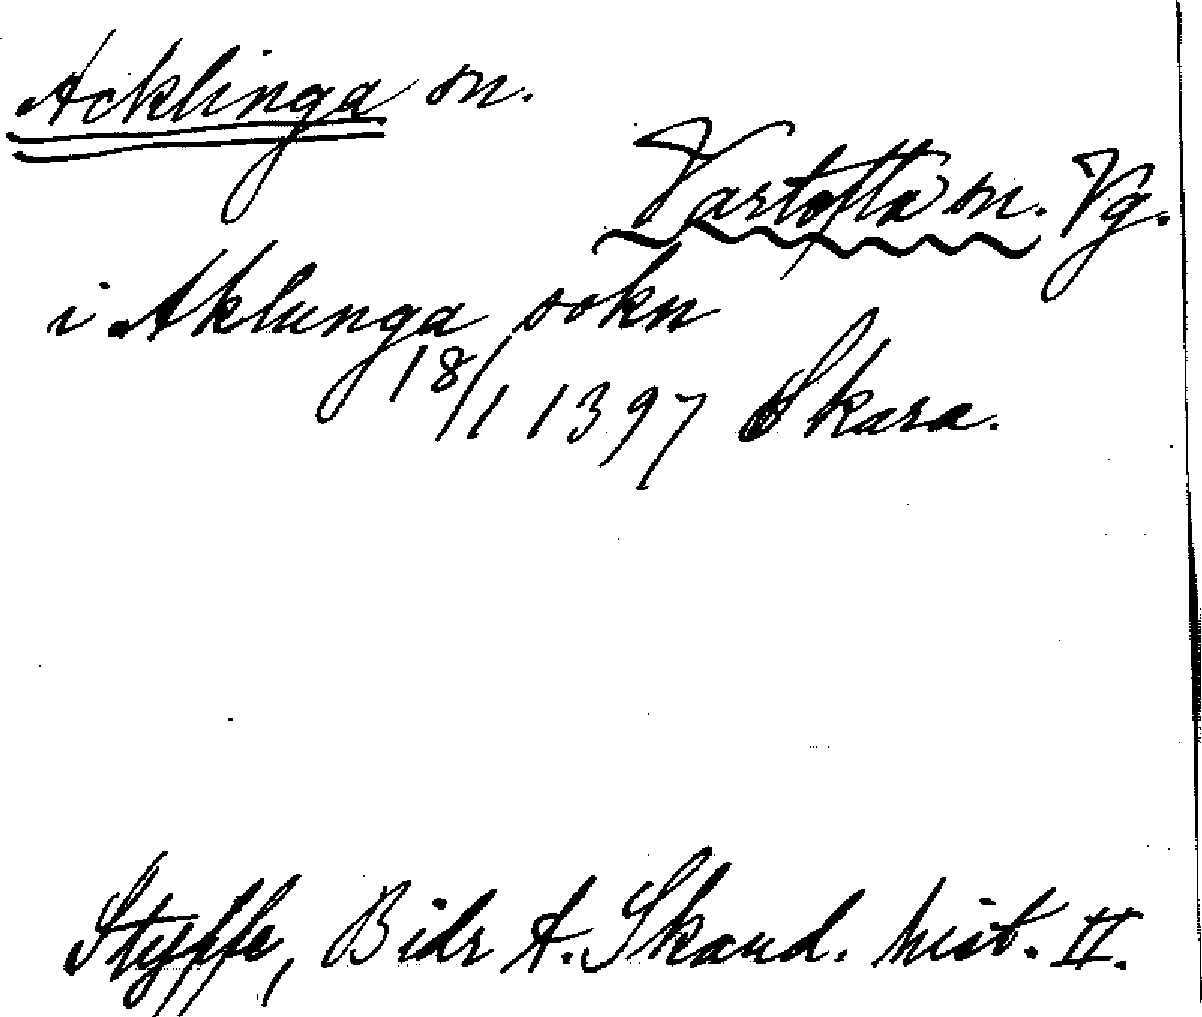 Acklinga sn.
Vartofta sn. Vg.
i Aklunga sokn
18/1 1397 Skara.
Styffe, Bidr t. Skand. hist. II.